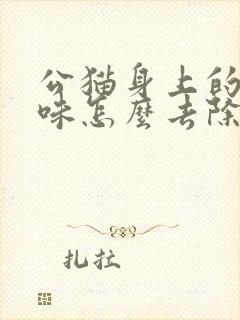 公猫身上的
味怎麼去除
扎拉